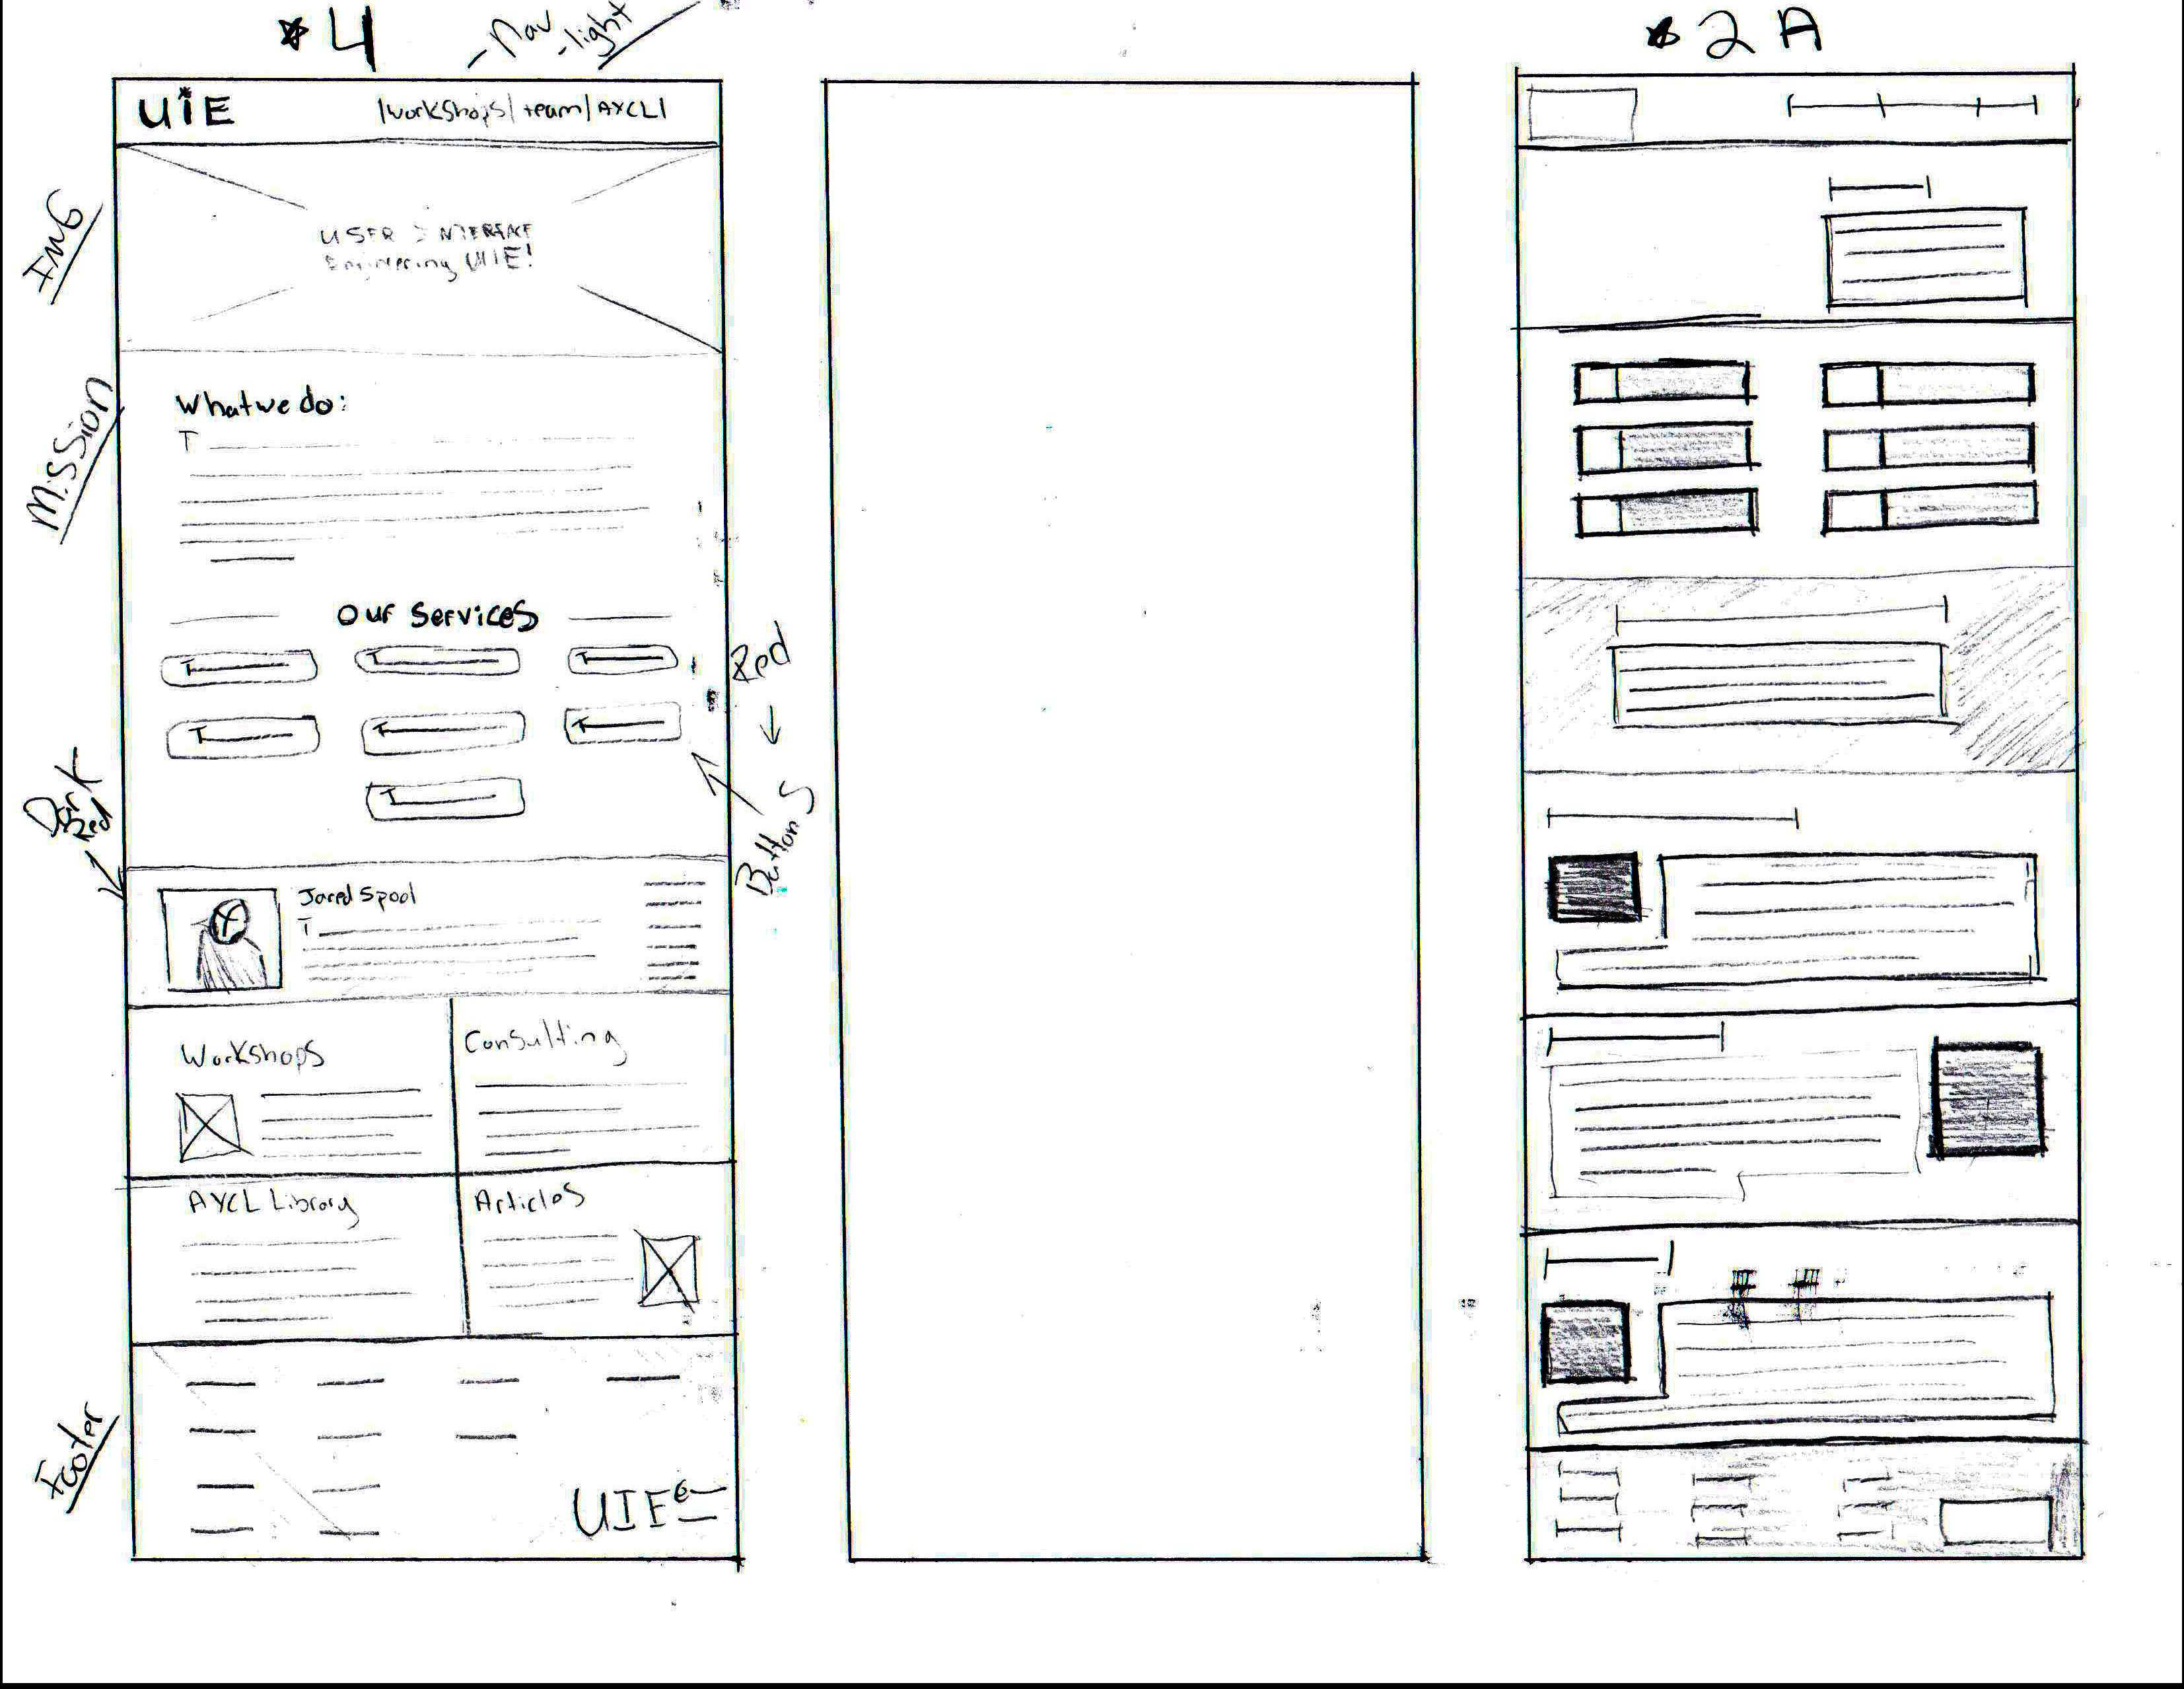 *4
- Nav
- light
*2A
UIE
|workshops|team|AYCL|
Img
USER INTERFACE
Engineering UIE!
Mission
What we do:
T
Our Services
T
T
T
T
T
T
T
Red
Buttons
Dark
Red
Jared Spool
T
Workshops
Consulting
AYCL Library
Articles
Footer
UIE